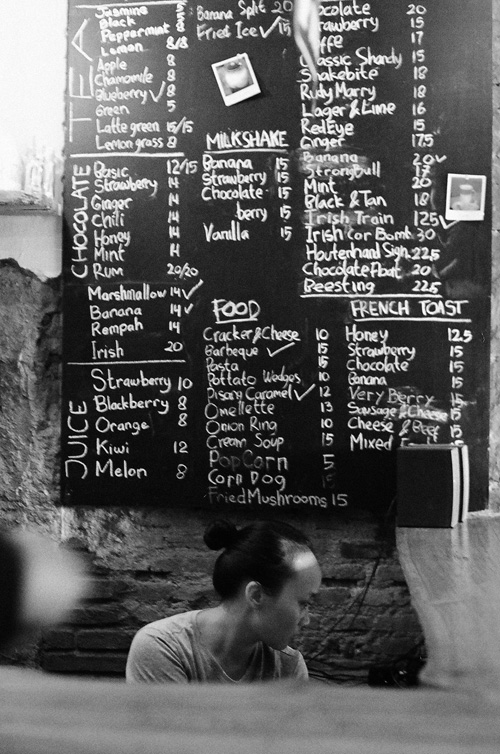 TEA
Jasmine
Black
Peppermint
Lemon 8/8
Apple 8
Chamomile 8
Blueberry ✓ 8
Green 5
Latte green 15/15
Lemon grass 8
CHOCOLATE
Basic 12/15
Strawberry 14
Ginger 14
Chili 14
Honey 14
Mint 14
Rum 20/20
Marshmallow 14 ✓
Banana 14 ✓
Rempah 14
Irish 20
JUICE
Strawberry 10
Blackberry 8
Orange 8
Kiwi 12
Melon 8
Banana Split 20
Fried Ice ✓ 15
MILKSHAKE
Banana 15
Strawberry 15
Chocolate 15
berry 15
Vanilla 15
FOOD
Cracker & Cheese 10
Barbeque ✓ 15
Pasta 15
Pottato Wedges 10
Pisang Caramel ✓ 12
Omellette 13
Onion Ring 10
Cream Soup 15
PopCorn 5
Corn Dog 15
Fried Mushrooms 15
ocolate 20
rawberry 15
ffe 17
assic Shandy 15
Shakebite 18
Rudy Marry 18
Lager & Lime 16
Red Eye 15
Ginger 17.5
Banana 20 ✓
Strongbull 17
Mint 20
Black & Tan 18
Irish Train 125 ✓
Irish Car Bomb 30
Houterhand Sign 22.5
Chocolate Float 20
Beesting 22.5
FRENCH TOAST
Honey 12.5
Strawberry 15
Chocolate 15
Banana 15
Very Berry 15
Sausage & Cheese 15
Cheese & Beef 15
Mixed 15